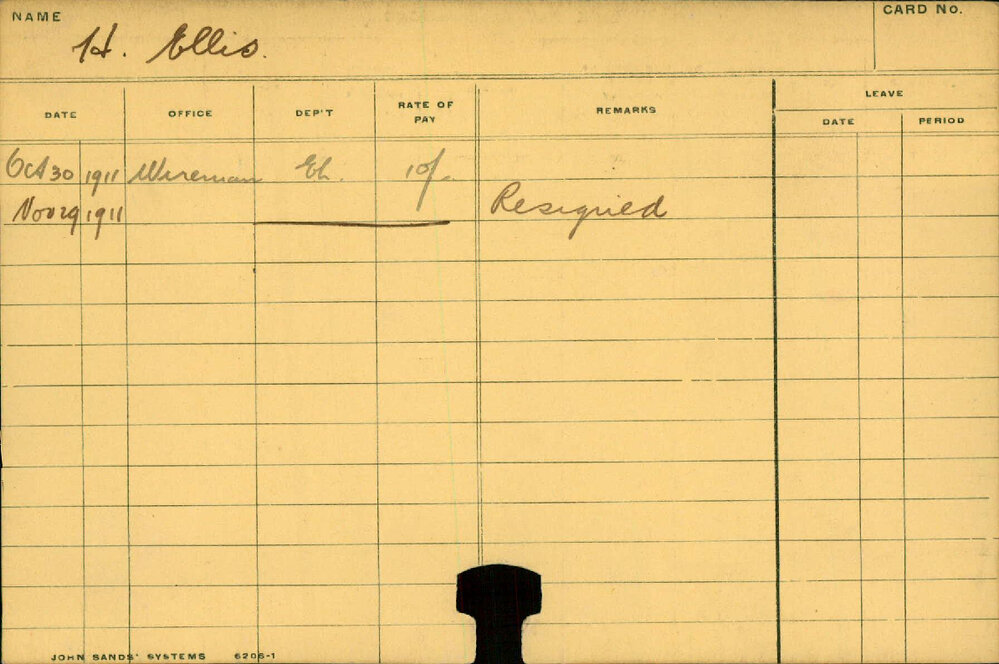 NAME H. Ellis. CARD No.
DATE OFFICE DEP'T RATE OF PAY REMARKS LEAVE
DATE PERIOD
Oct 30 1911 Wireman El. 10/-
Nov 29 1911 Resigned
JOHN SANDS' SYSTEMS 6206-1